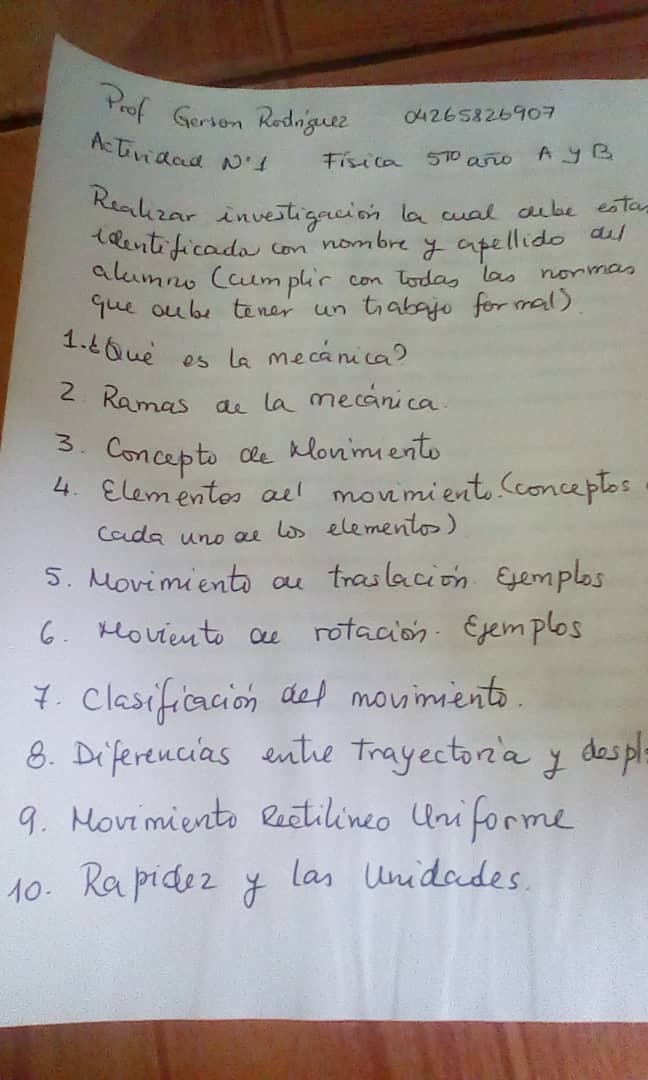 Prof Gerson Rodríguez 04265826907
Actividad N°1 Física 5to año A y B
Realizar investigación la cual debe estar
identificada con nombre y apellido del
alumno (cumplir con todas las normas
que debe tener un trabajo formal)
1. ¿Qué es la mecánica?
2 Ramas de la mecánica.
3. Concepto de Movimiento
4. Elementos del movimiento. (conceptos
cada uno de los elementos)
5. Movimiento de traslación. Ejemplos
6. Moviento de rotación. Ejemplos
7. Clasificación del movimiento.
8. Diferencias entre trayectoria y despl
9. Movimiento Rectilineo Uniforme
10. Rapidez y las Unidades.